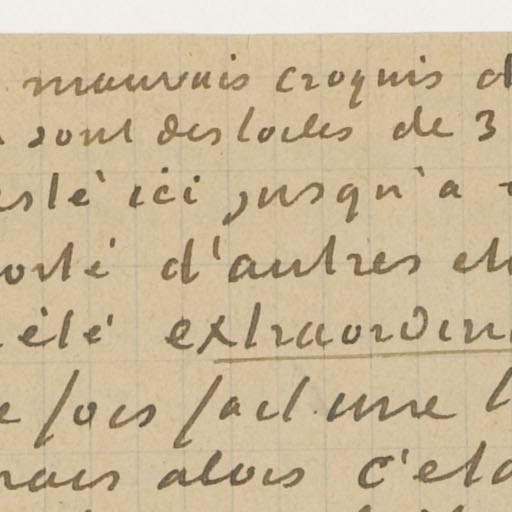 mauvais croquis d
sont des toiles de 3
esté ici jusqu'a
orté d'autres et
été extraordin
e fois fait une
mais alors c'eta